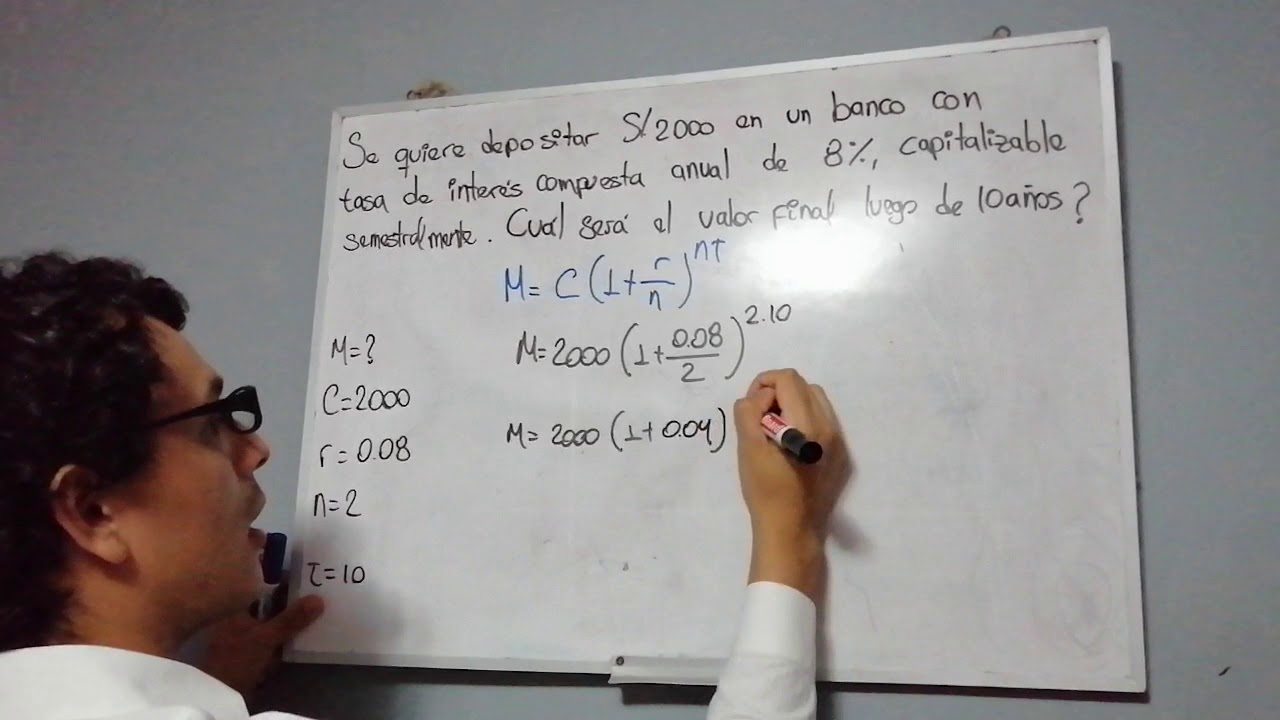 Se quiere depositar S/2000 en un banco con
tasa de interés compuesta anual de 8%, capitalizable
semestralmente. Cuál será el valor final luego de 10 años?
M= C(1+r/n)^nT
M=?
M=2000(1+0.08/2)^2.10
C=2000
M= 2000 (1+0.04)
r=0.08
n=2
T=10